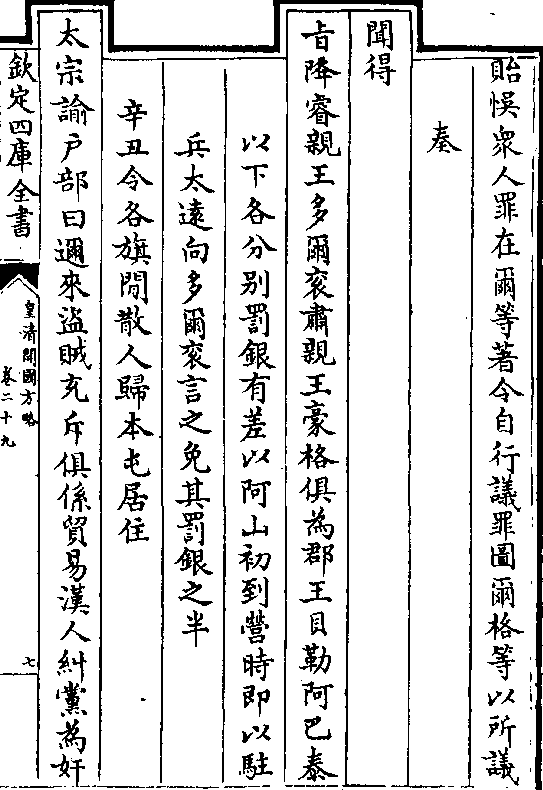 貽悞衆人罪在爾等著令自行議罪圖爾格等以所議
奏
聞得
㫖降睿親王多爾衮肅親王豪格俱為郡王貝勒阿巴泰
以下各分别罰銀有差以阿山初到營時即以駐
兵太遠向多爾衮言之免其罰銀之半
辛丑令各旗閒散人歸本屯居住
太宗諭户部曰邇來盜賊充斥俱係貿易漢人糾黨為奸
欽定四庫全書
皇清開國方略
卷二十九
七